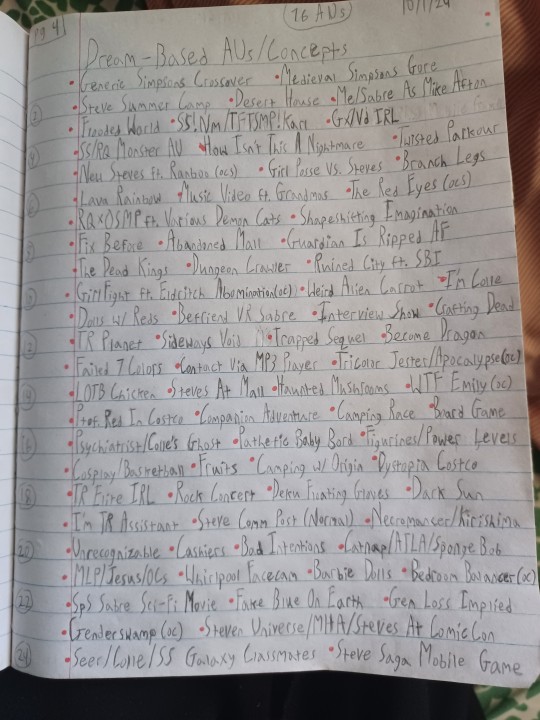 Pg 4
76 AUs
10/1/24
Dream-Based AUs/Concepts
• Generic Simpsons Crossover • Medieval Simpsons Gore
• Steve Summer Camp • Desert House • Me/Sabre As Mike Afton
• Flooded World • SS!Nm/TFTSMP!Karl • GxNd IRL
• SS/RQ Monster AU • How Isn't This A Nightmare • Twisted Parkour
• New Steves ft. Ranboo (ocs) • Girl Posse Vs. Steves • Branch Legs
• Lava Rainbow • Music Video ft. Grandmas • The Red Eyes (ocs)
• RQxOSMP ft. Various Demon Cats • Shapeshifting Imagination
• Fix Before • Abandoned Mall • Guardian Is Ripped AF
• The Dead Kings • Dungeon Crawler • Ruined City ft. SBI
• Girl Fight ft. Eldritch Abomination(oc) • Weird Alien Carrot • I'm Collie
• Dolls w/ Reds • Befriend VR Sabre • Interview Show • Crafting Dead
• TR Planet • Sideways Void • Trapped Sequel • Become Dragon
• Failed 7 Colors • Contact Via MP3 Player • Tricolor Jester/Apocalypse(oc)
• LOTB Chicken • Steves At Mall • Haunted Mushrooms • WTF Emily (oc)
• Prof. Red In Costco • Companion Adventure • Camping Race • Board Game
• Psychiatrist/Collie's Ghost • Pathetic Baby Bord • Figurines/Power Levels
• Cosplay/Basketball • Fruits • Camping w/ Origin • Dystopia Costco
• TR Elite IRL • Rock Concert • Deku Floating Gloves • Dark Sun
• I'm TR Assistant • Steve Comm Post (Normal) • Necromanser/Kirishima
• Unrecognizable • Cashiers • Bad Intentions • Catnap/ATLA/Sponge Bob
• MLP/Jesus/OCs • Whirlpool Facecam • Barbie Dolls • Bedroom Balances(oc)
• SpS Sabre Sci-Fi Movie • Fake Blue On Earth • Gen Loss Implied
• Genderswamp (oc) • Steven Universe/MHA/Steves At Comic Con
• Seer/Collie/SS Galaxy Classmates • Steve Saga Mobile Game